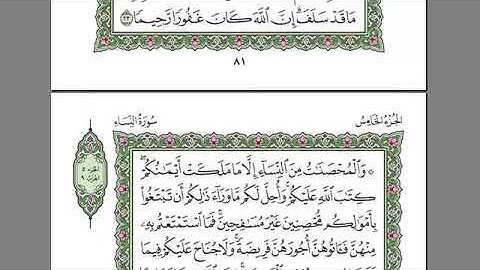 مَا قَدۡ سَلَفَۗ إِنَّ ٱللَّهَ كَانَ غَفُورٗا رَّحِيمٗا ٢٣
٨١
الجزء الخامس
سورة النساء
۞ وَٱلۡمُحۡصَنَٰتُ مِنَ ٱلنِّسَآءِ إِلَّا مَا مَلَكَتۡ أَيۡمَٰنُكُمۡۖ
كِتَٰبَ ٱللَّهِ عَلَيۡكُمۡۚ وَأُحِلَّ لَكُم مَّا وَرَآءَ ذَٰلِكُمۡ أَن تَبۡتَغُواْ
بِأَمۡوَٰلِكُم مُّحۡصِنِينَ غَيۡرَ مُسَٰفِحِينَۚ فَمَا ٱسۡتَمۡتَعۡتُم بِهِۦ
مِنۡهُنَّ فَـَٔاتُوهُنَّ أُجُورَهُنَّ فَرِيضَةٗۚ وَلَا جُنَاحَ عَلَيۡكُمۡ فِيمَا